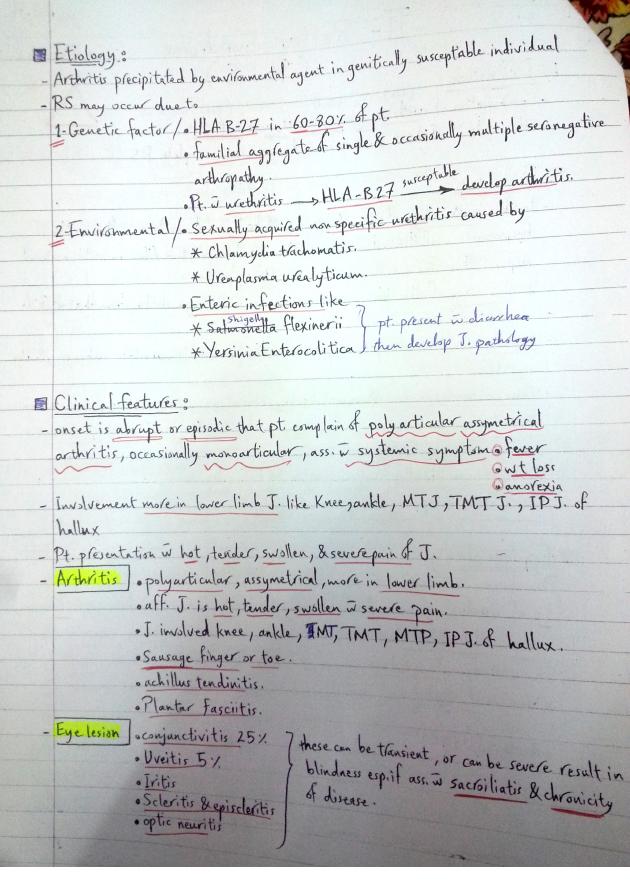 Etiology :
- Arthritis precipitated by environmental agent in genitically susceptable individual
- RS may occur due to
1- Genetic factor / • HLA B-27 in 60-80% of pt.
• familial aggregate of single & occasionally multiple seronegative
arthropathy.
• Pt. w̄ urethritis → HLA-B27 susceptable → develop arthritis.
2- Environmental / • Sexually acquired non specific urethritis caused by
* Chlamydia trachomatis.
* Ureaplasma urealyticum.
• Enteric infections like
* Shigella flexinerii } pt. present w̄ diarrhea
* Yersinia Enterocolitica } then develop J. pathology
Clinical features :
- onset is abrupt or episodic that pt complain of polyarticular assymetrical
arthritis, occasionally monoarticular, ass. w̄ systemic symptom • fever
• wt loss
• anorexia
- Involvement more in lower limb J. like Knee, ankle, MTJ, TMT J., IP J. of
hallux
- Pt. presentation w̄ hot, tender, swollen, & severe pain of J.
- Arthritis • polyarticular, assymetrical, more in lower limb.
• aff. J. is hot, tender, swollen w̄ severe pain.
• J. involved knee, ankle, TMT, MTP, IP J. of hallux.
• Sausage finger or toe.
• achillus tendinitis.
• Plantar fasciitis.
- Eye lesion • conjunctivitis 25%
• Uveitis 5%
• Iritis
• Scleritis & episcleritis
• optic neuritis
these can be transient, or can be severe result in
blindness esp. if ass. w̄ sacroiliatis & chronicity
of disease.